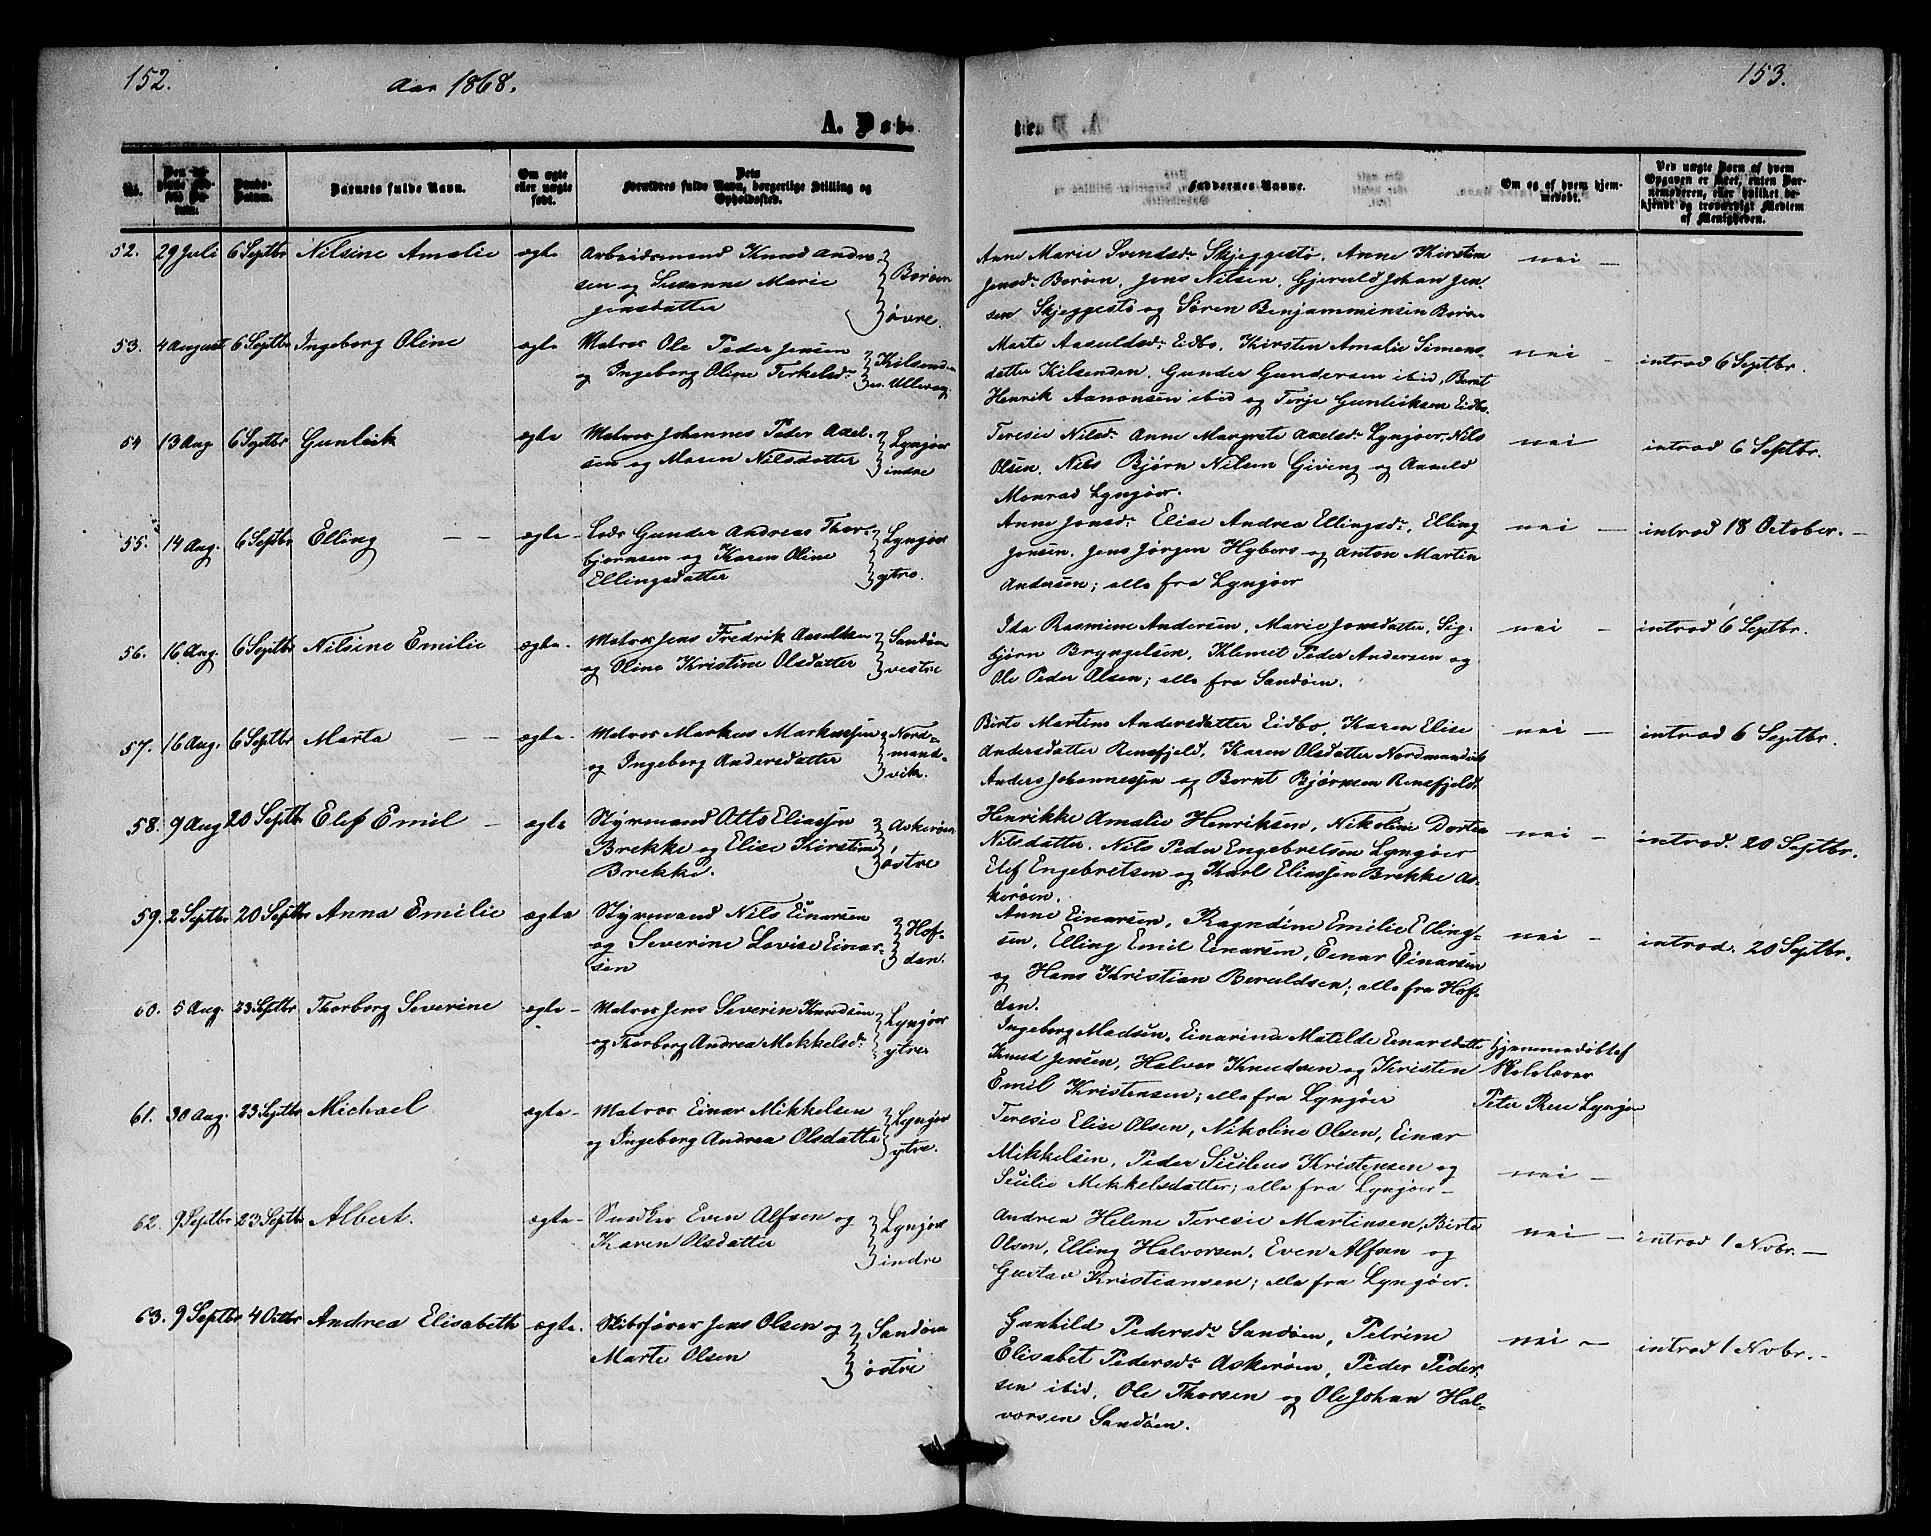 152.
Aar 1868.
A. Døb-
No.
Barnets fulde Navn.
Om ægte
eller uægte
født.
Dets
Forældres fulde Navn, borgerlige Stilling og
Opholdssted.
52. 29 Juli 6 Septbr Nilsine Amalie ægte Arbeidsmand Knud Andre- Borøen
sen og Susanne Marie
Jensdatter øvre.
53. 4 August 6 Septbr Ingeborg Oline ægte Matros Ole Peder Jensen Kilsenden
og Ingeborg Oline Terkelsdr
54 13 Aug 6 Septbr Gunleik ægte Matros Johannes Peder Axel- Lyngøer
sen og Maren Nilsdatter indre
55. 14 Aug. 6 Septbr Elling – – ægte – Lods Gunder Andreas Thor- Lyngøer
bjørnsen og Karen Oline
Ellingsdatter ytre.
56. 16 Aug. 6 Septbr Nilsine Emilie ægte. Matros Jens Fredrik Aasulksen Sandøen
og Oline Kristine Olsdatter vestre
57. 16 Aug. 6 Septbr Marta – – ægte. Matros Markus Markussen Nord-
og Ingeborg Andersdatter mand-
vik.
58. 9 Aug 20 Septbr Elef Emil – ægte Styrmand Otto Eliassen Askerøen
Brekke og Elise Kirstine
Brekke. østre
59. 2 Septbr 20 Septbr Anna Emilie ægte Styrmand Nils Einarsen Hof-
og Severine Lovise Einar- dan.
sen
60. 5 Aug. 23 Septbr Thorborg Severine ægte – Matros Jens Severin Knudsen Lyngøer
og Thorborg Andrea Mikkelsdr ytre
61. 30 Aug. 23 Septbr Michael ægte – Matros Einar Mikkelsen Lyngøer
og Ingeborg Andrea Olsdatter ytre.
62. 9 Septbr 23 Septbr Albert. ægte – Snedker Even Alfsen og Lyngøer
Karen Olsdatter indre
63. 9 Septbr 4 Octbr Andrea Elisabeth ægte. Skibsfører Jens Olsen og Sandøen
Marte Olsen østre
153.
te
Faddernes Navne.
Om og af hvem hjem-
medøbt.
Ved uægte Barn af hvem
Opgaven er skeet, enten Bar-
nemoderen, eller hvilket be-
kjendt og troværdigt Medlem
af Menigheden.
Anne Marie Svendsdr Skjeggestø, Anne Kirstine nei –
Jensdr Borøen, Jens Nilsen, Gjeruld Johan Jen
sen Skjeggestø og Søren Benjaminsen Borøen
Marte Aasuldsdr Eidbo, Kirsten Amalie Simens- nei – introd 6 Septbr.
datter Kilsenden, Gunder Gundersen ibid, Bernt
Henrik Aanonsen ibid og Terje Gunleiksen Eidbo.
Teresie Nilsdr Anne Margrete Axelsdr Lyngøer, Nils nei introd 6 Septbr.
Olsen, Nils Bjørn Nilsen Giveng og Aanuld
Monrad Lyngøer.
Anne Jonsdr Elise Andrea Ellingsdr, Elling nei – introd 18 October. –
Jonsen, Jens Jørgen Hybers og Anton Martin
Andersen; alle fra Lyngøer
Ida Rasmine Andersen, Marie Jonsdatter, Sig- nei – introd 6 Septbr.
bjørn Bryngelsen, Klemet Peder Andersen og
Ole Peder Olsen; alle fra Sandøen.
Birte Martine Andersdatter Eidbo, Karen Elise nei – introd 6 Septbr.
Andersdatter Renefjeld, Karen Olsdatter Nordmandvik
Anders Johannessen og Bernt Bjørnsen Renefjeld.
Henrikke Amalie Henriksen, Nikoline Dortea nei – introd. 20 Septbr.
Nilsdatter, Nils Peder Engebretsen Lyngøer
Elef Engebretsen og Karl Eliassen Brekke As-
kerøen.
Anne Einarsen, Ragndine Emilie Elling- nei – introd. 20 Septbr.
sen, Elling Emil Einarsen, Einar Einarsen
og Hans Kristian Beruldsen; alle fra Hof-
dan.
Ingeborg Madsen, Einarine Matilde Einarsdatter hjemmedøbt af
Knud Jensen, Halvor Knudsen og Kristen Skolelærer
Emil Kristensen; alle fra Lyngøer Peter Rese Lyngør
Teresie Elise Olsen, Nikoline Olsen, Einar
Mikkelsen, Peder Sicilius Kristensen og nei –
Secilie Mikkelsdatter; alle fra Lyngøer –
Andrea Helene Teresie Martinsen, Birte nei – introd 1 Novbr. –
Olsen, Elling Halvorsen, Even Alfsen og
Gustav Kristiansen; alle fra Lyngøer.
Gunhild Pedersdr Sandøen, Petrine nei – introd 1 Novbr. –
Elisabet Pedersdr Askerøen, Peder Peder-
sen ibid, Ole Thorsen og Ole Johan Hal-
vorsen Sandøen.